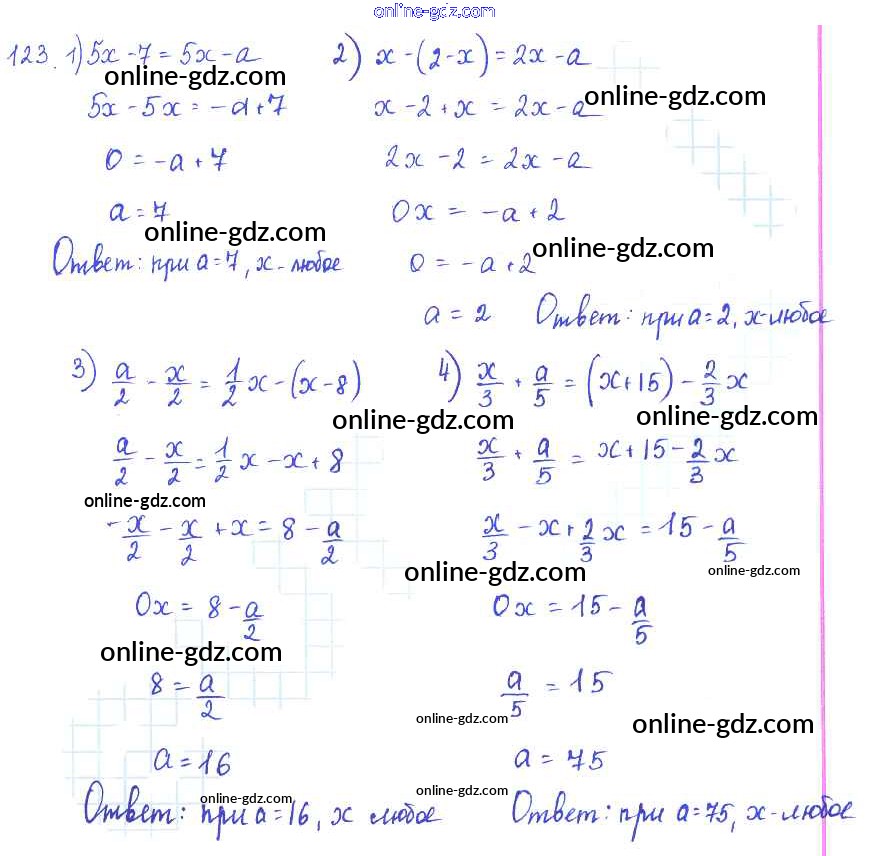 online-gdz.com
123. 1) 5x - 7 = 5x - a
online-gdz.com
5x - 5x = -a + 7
0 = -a + 7
a = 7
online-gdz.com
Ответ: при a = 7, x - любое
2) x - (2 - x) = 2x - a
online-gdz.com
x - 2 + x = 2x - a
2x - 2 = 2x - a
0x = -a + 2
online-gdz.com
0 = -a + 2
a = 2 Ответ: при a = 2, x - любое
3) a/2 - x/2 = 1/2 x - (x - 8)
online-gdz.com
a/2 - x/2 = 1/2 x - x + 8
online-gdz.com
-x/2 - x/2 + x = 8 - a/2
0x = 8 - a/2
online-gdz.com
8 = a/2
a = 16
online-gdz.com
Ответ: при a = 16, x любое
4) x/3 + a/5 = (x + 15) - 2/3 x
online-gdz.com
x/3 + a/5 = x + 15 - 2/3 x
x/3 - x + 2/3 x = 15 - a/5
online-gdz.com
online-gdz.com
0x = 15 - a/5
a/5 = 15
online-gdz.com
online-gdz.com
a = 75
online-gdz.com
Ответ: при a = 75, x - любое